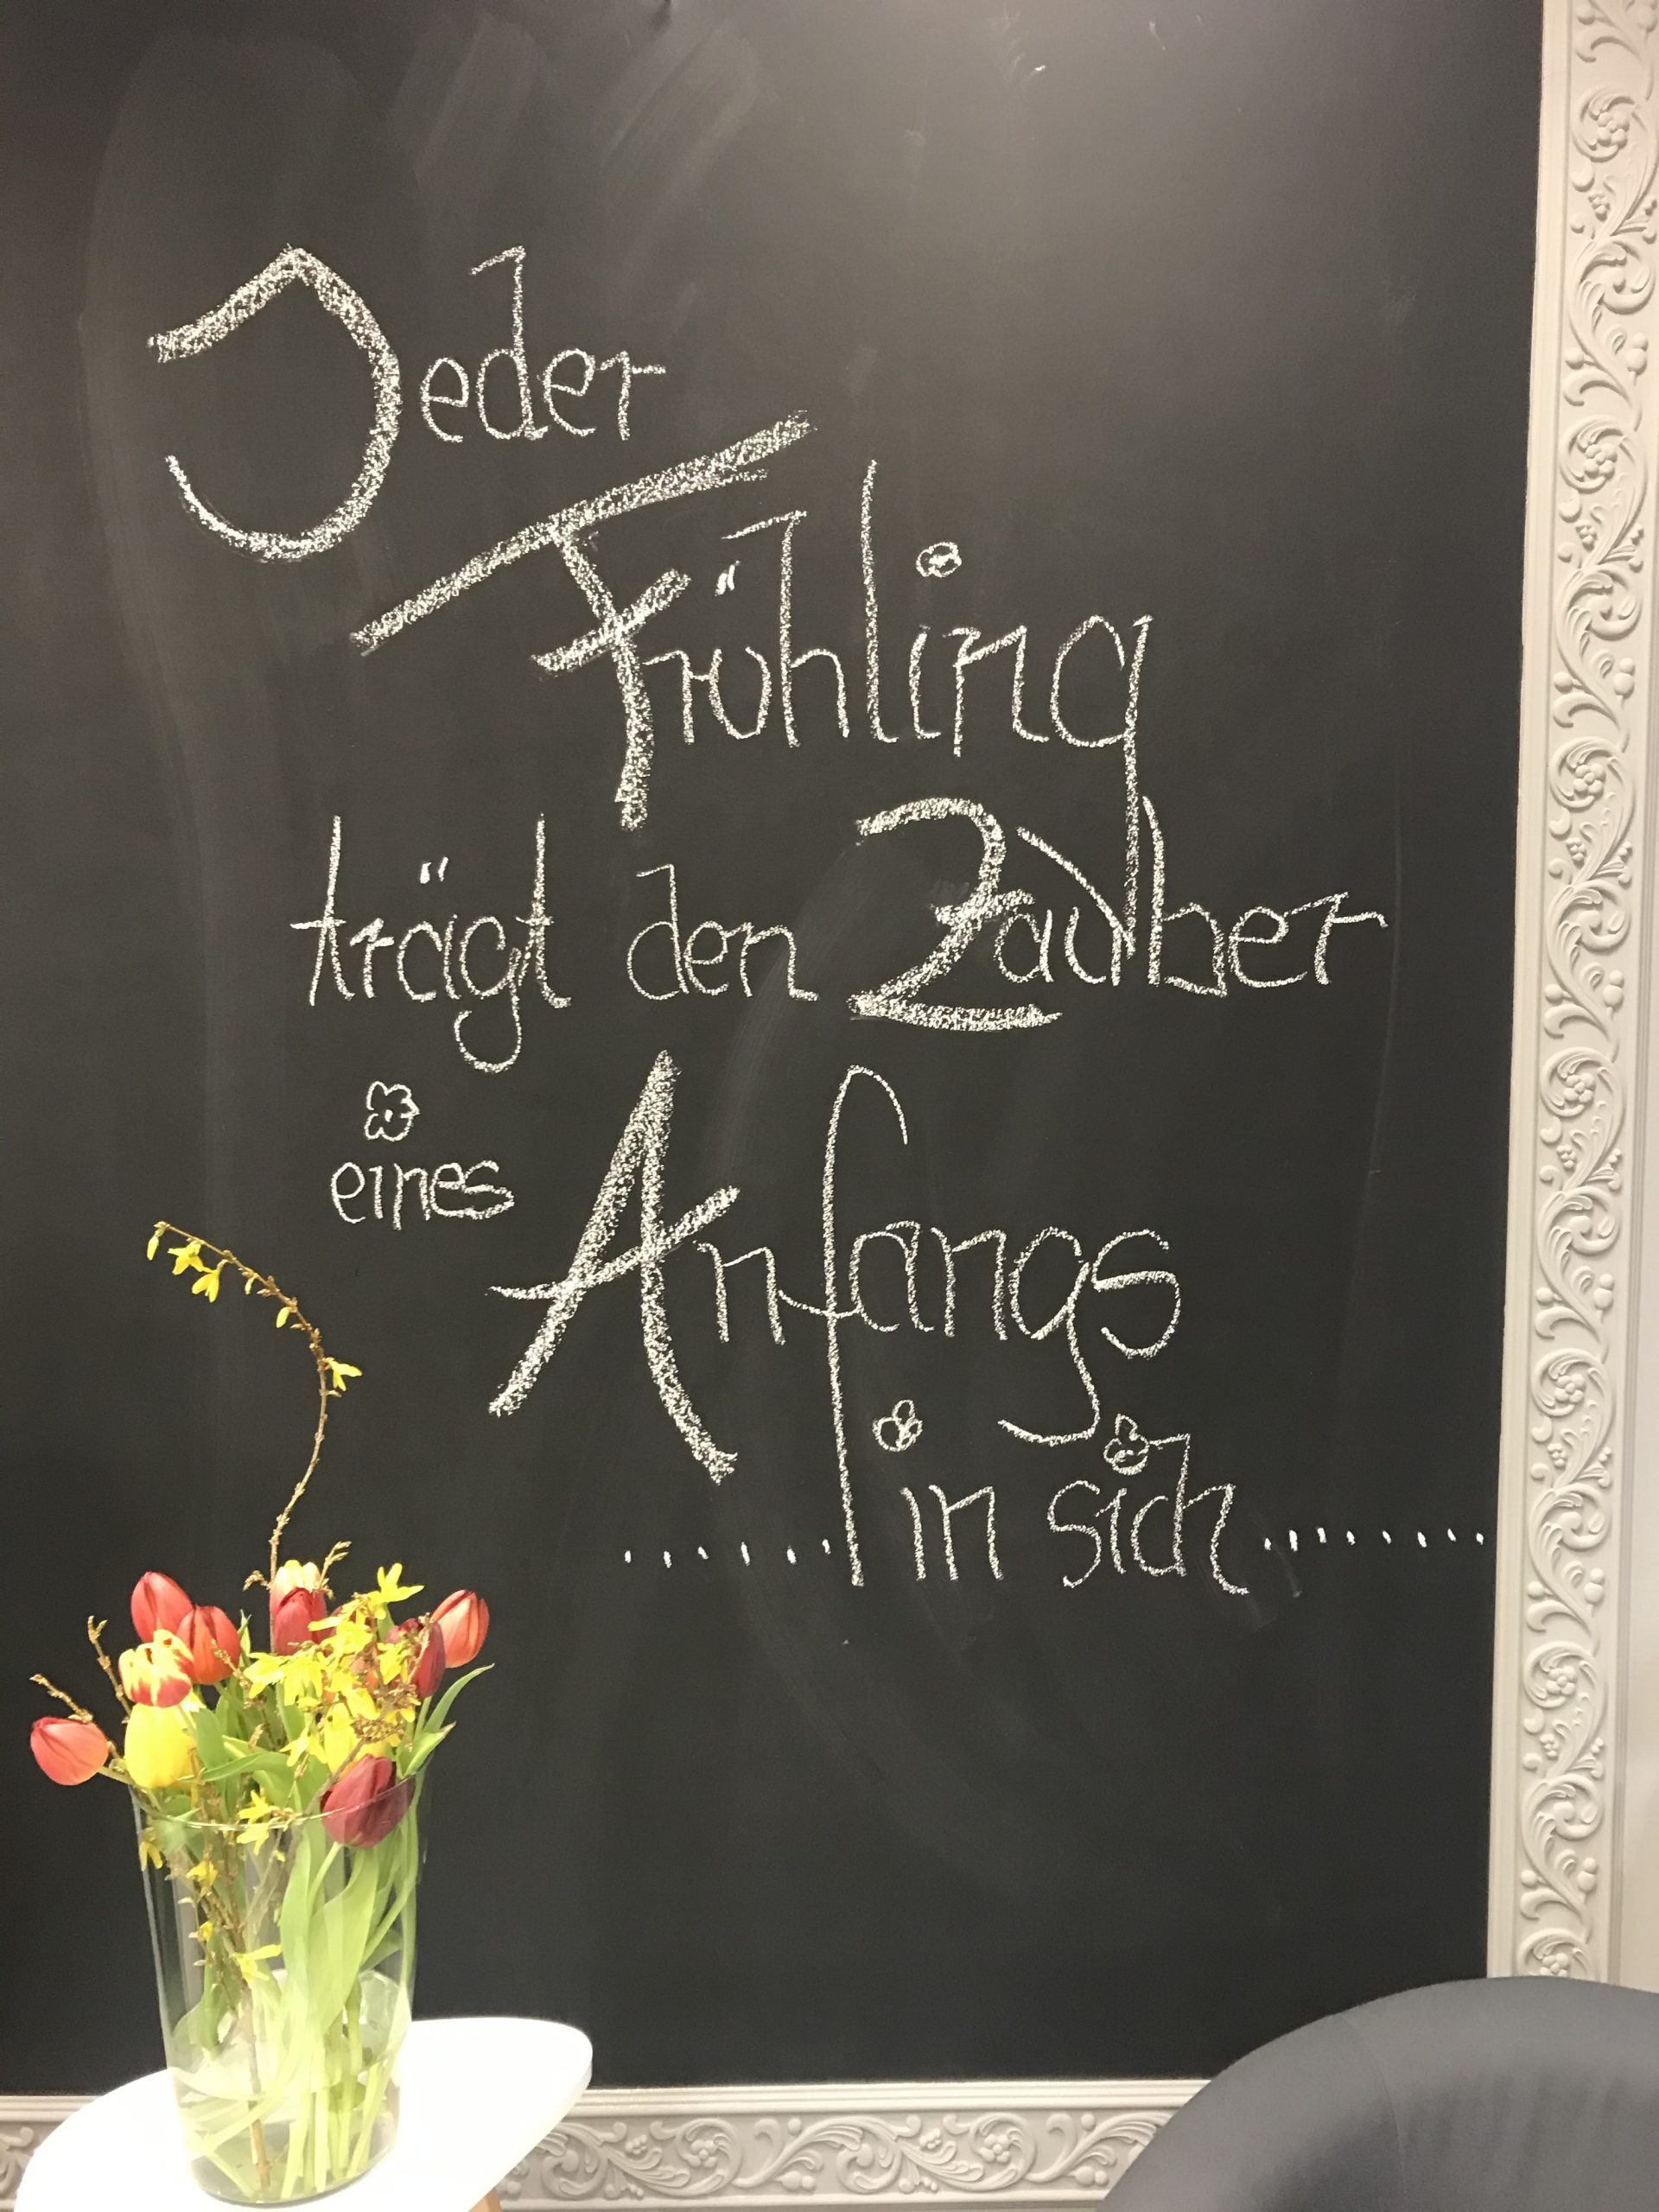 Jeder
Frühling
trägt den Zauber
eines
Anfangs
...... in sich .........